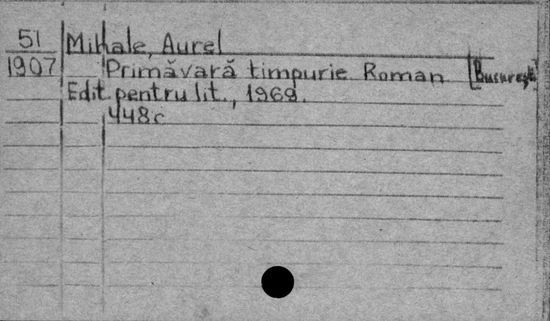 51 Mihale, Aurel
1907 Primăvară timpurie. Roman [București]
Edit. pentru lit., 1969.
448c